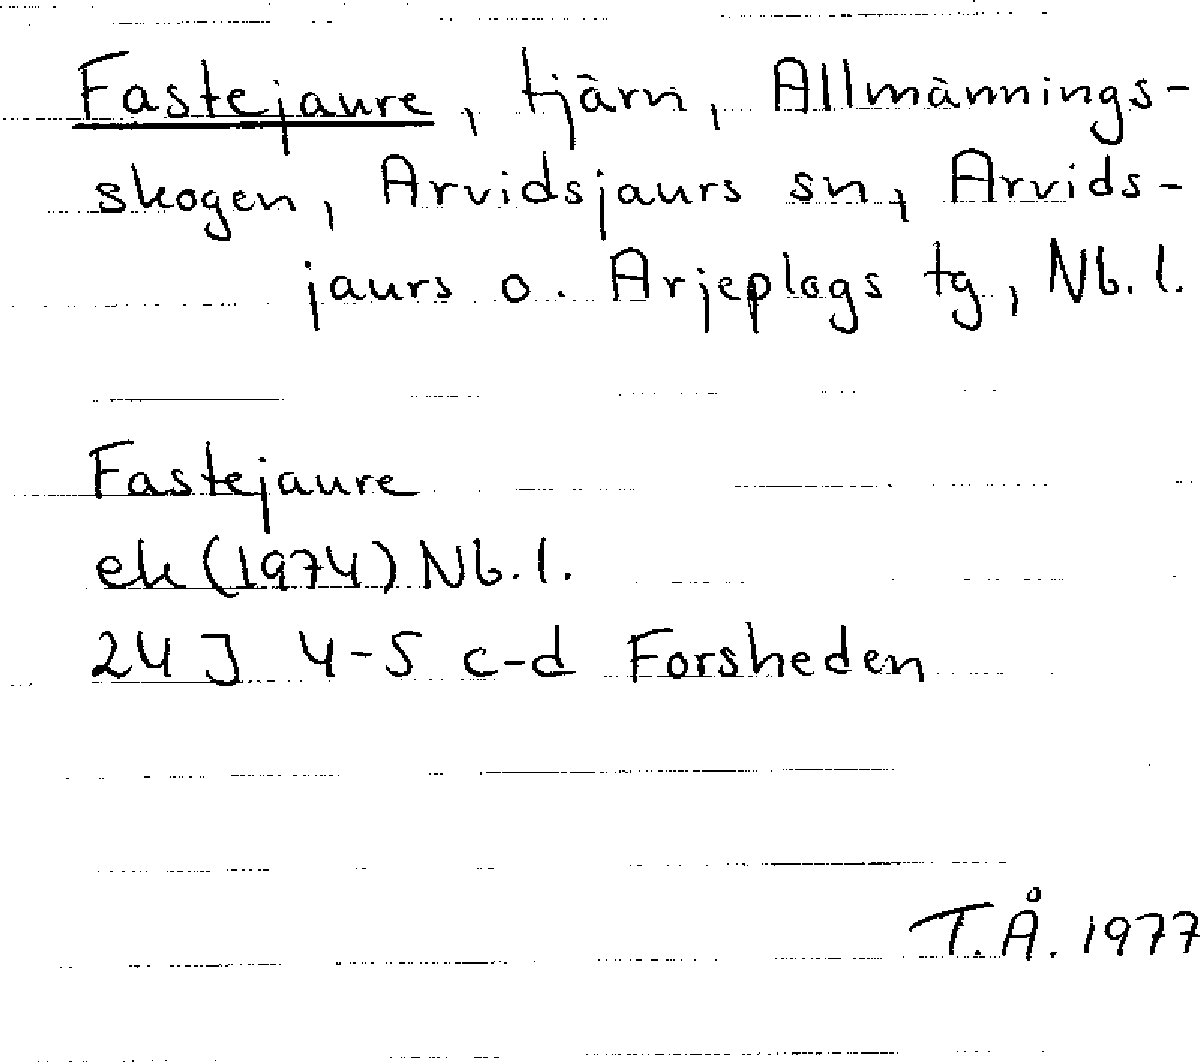 Fastejaure, tjärn, Allmännings-
skogen, Arvidsjaurs sn, Arvids-
jaurs o. Arjeplogs tg, Nb. l.
Fastejaure
ek (1974) Nb. l.
24 J 4-5 c-d Forsheden
T.Å. 1977